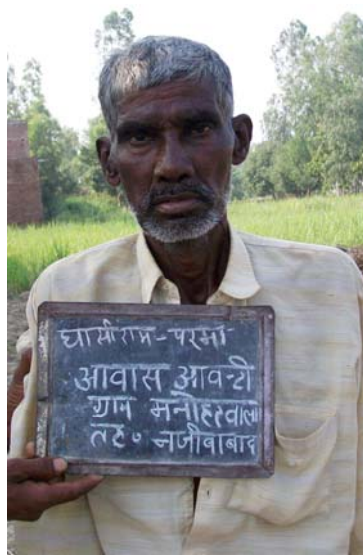 घासीराम - परमा
आवास आवन्टी
ग्राम मनोहरवाला
तह० नजीबाबाद